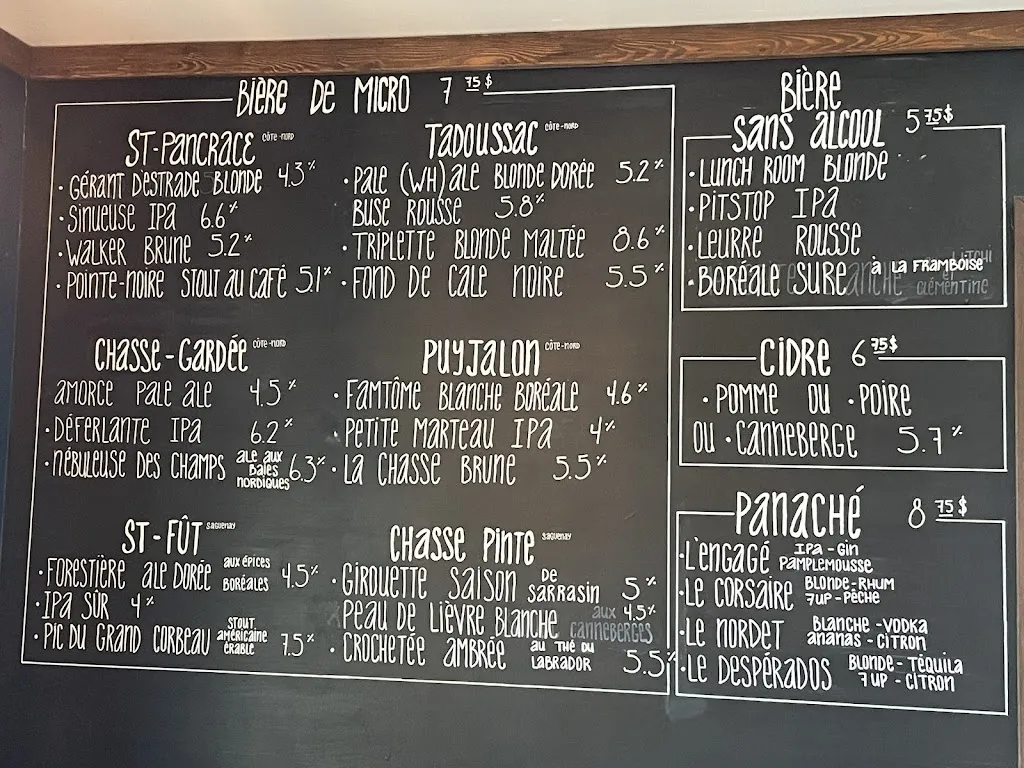 BIÈRE DE MICRO 7 75$
ST-PANCRACE CÔTE-NORD
• GÉRANT D'ESTRADE BLONDE 4.3%
• SINUEUSE IPA 6.6%
• WALKER BRUNE 5.2%
• POINTE-NOIRE STOUT AU CAFÉ 5.1%
TADOUSSAC CÔTE-NORD
• PALE (WH)ALE BLONDE DORÉE 5.2%
BUSE ROUSSE 5.8%
• TRIPLETTE BLONDE MALTÉE 8.6%
• FOND DE CALE NOIRE 5.5%
CHASSE-GARDÉE CÔTE-NORD
AMORCE PALE ALE 4.5%
• DÉFERLANTE IPA 6.2%
• NÉBULEUSE DES CHAMPS ALE AUX BAIES NORDIQUES 6.3%
PUYJALON CÔTE-NORD
• FAMTÔME BLANCHE BORÉALE 4.6%
• PETITE MARTEAU IPA 4%
• LA CHASSE BRUNE 5.5%
ST-FÛT SAGUENAY
• FORESTIÈRE ALE DORÉE AUX ÉPICES BORÉALES 4.5%
• IPA SÛR 4%
• PIC DU GRAND CORBEAU STOUT AMÉRICAINE ÉRABLE 7.5%
CHASSE PINTE SAGUENAY
• GIROUETTE SAISON DE SARRASIN 5%
PEAU DE LIÈVRE BLANCHE AUX CANNEBERGES 4.5%
• CROCHETÉE AMBRÉE AU THÉ DU LABRADOR 5.5%
BIÈRE
SANS ALCOOL 5 75$
• LUNCH ROOM BLONDE
• PITSTOP IPA
• LEURRE ROUSSE
• BORÉALE SURE À LA FRAMBOISE
CLÉMENTINE
CIDRE 6 75$
• POMME OU • POIRE
OU • CANNEBERGE 5.7%
PANACHÉ 8 75$
• L'ENGAGÉ IPA - GIN
PAMPLEMOUSSE
• LE CORSAIRE BLONDE-RHUM
7UP-PÊCHE
• LE NORDET BLANCHE -VODKA
ANANAS - CITRON
• LE DESPÉRADOS BLONDE - TÉQUILA
7 UP - CITRON